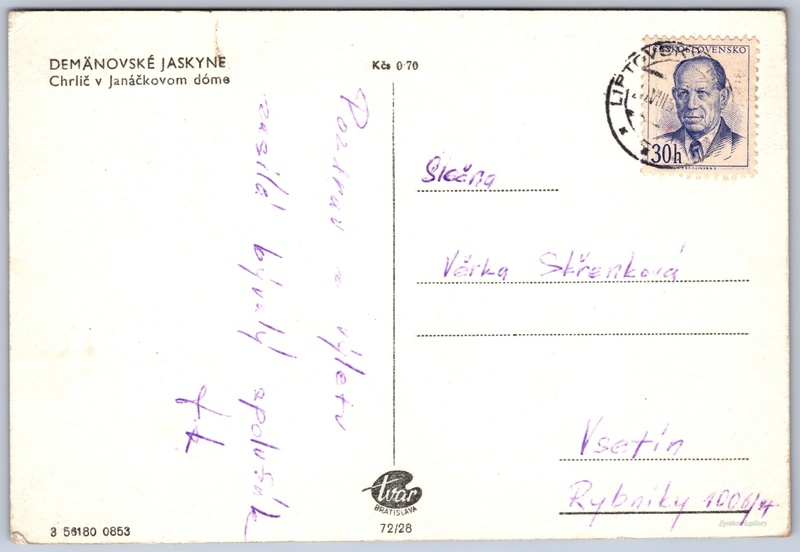 DEMÄNOVSKÉ JASKYNE
Chrlič v Janáčkovom dóme
Kčs 0·70
Pozdrav z výletu
zasílá bývalý spolužák
ČESKOSLOVENSKO
30h
LIPTOVSK
Slečna
Věrka Skřenková
Vsetín
Rybníky 1006/
tvar
BRATISLAVA
72/28
3 56180 0853